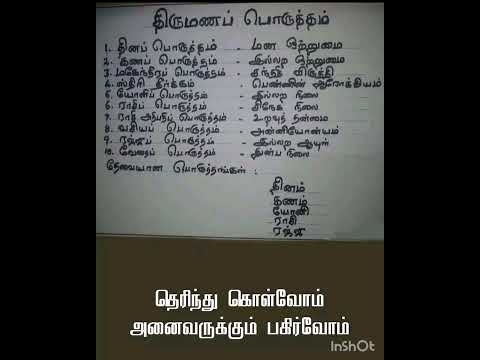 திருமணப் பொருத்தம்
1. தினப் பொருத்தம் - மன ஒற்றுமை
2. கணப் பொருத்தம் - இல்லற ஒற்றுமை
3. மகேந்திரப் பொருத்தம் - சந்ததி விருத்தி
4. ஸ்திரி தீர்க்கம் - பெண்ணின் ஆரோக்கியம்
5. யோனிப் பொருத்தம் - இல்லற நிலை
6. ராசிப் பொருத்தம் - சிநேக நிலை
7. ராசி அதிபதி பொருத்தம் - உறவுத் தன்மை
8. வசியப் பொருத்தம் - அன்னியோன்யம்
9. ரஜ்ஜுப் பொருத்தம் - இல்லற ஆயுள்
10. வேதைப் பொருத்தம் - துன்ப நிலை
தேவையான பொருத்தங்கள் :
தினம்
கணம்
யோனி
ராசி
ரஜ்ஜு
தெரிந்து கொள்வோம்
அனைவருக்கும் பகிர்வோம்
InShOt